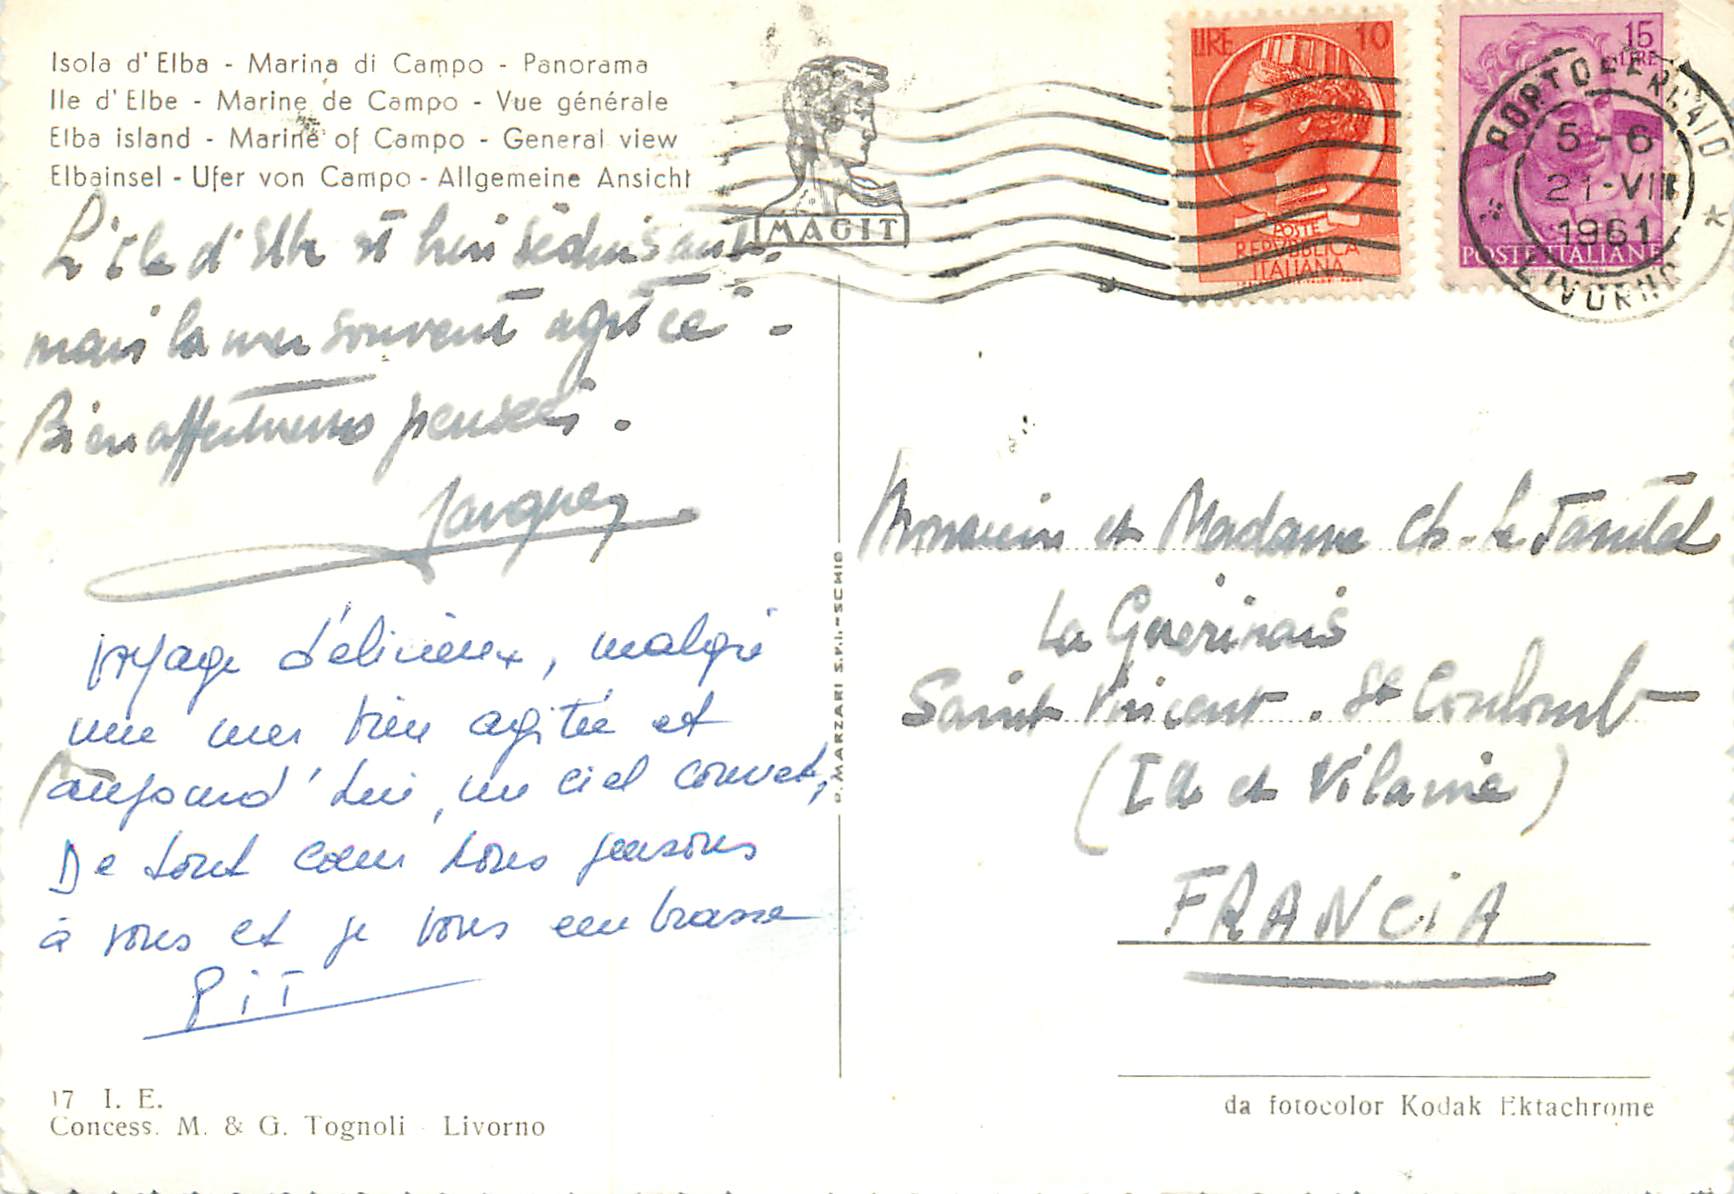 Isola d'Elba - Marina di Campo - Panorama
Ile d'Elbe - Marine de Campo - Vue générale
Elba island - Marine of Campo - General view
Elbainsel - Ufer von Campo - Allgemeine Ansicht
MAGIT
LIRE 10
POSTE
REPVBBLICA
ITALIANA
15
LIRE
POSTE ITALIANE
PORTOFERRAIO
5-6
21-VII
1961
* LIVORNO *
L'île d'Elbe est bien séduisante
mais la mer souvent agitée -
Bien affectueuses pensées.
Jacques
Voyage délicieux, malgré
une mer bien agitée et
aujourd'hui, un ciel couvert,
De tout cœur nous pensons
à vous et je vous embrasse
Pit
P. MARZARI S.R.L. - SCHIO
Monsieur et Madame Ch. Le
La Guérinais
Saint Vincent. St Coulomb
(Ille et Vilaine)
FRANCIA
17 I. E.
Concess. M. & G. Tognoli - Livorno
da fotocolor Kodak Ektachrome